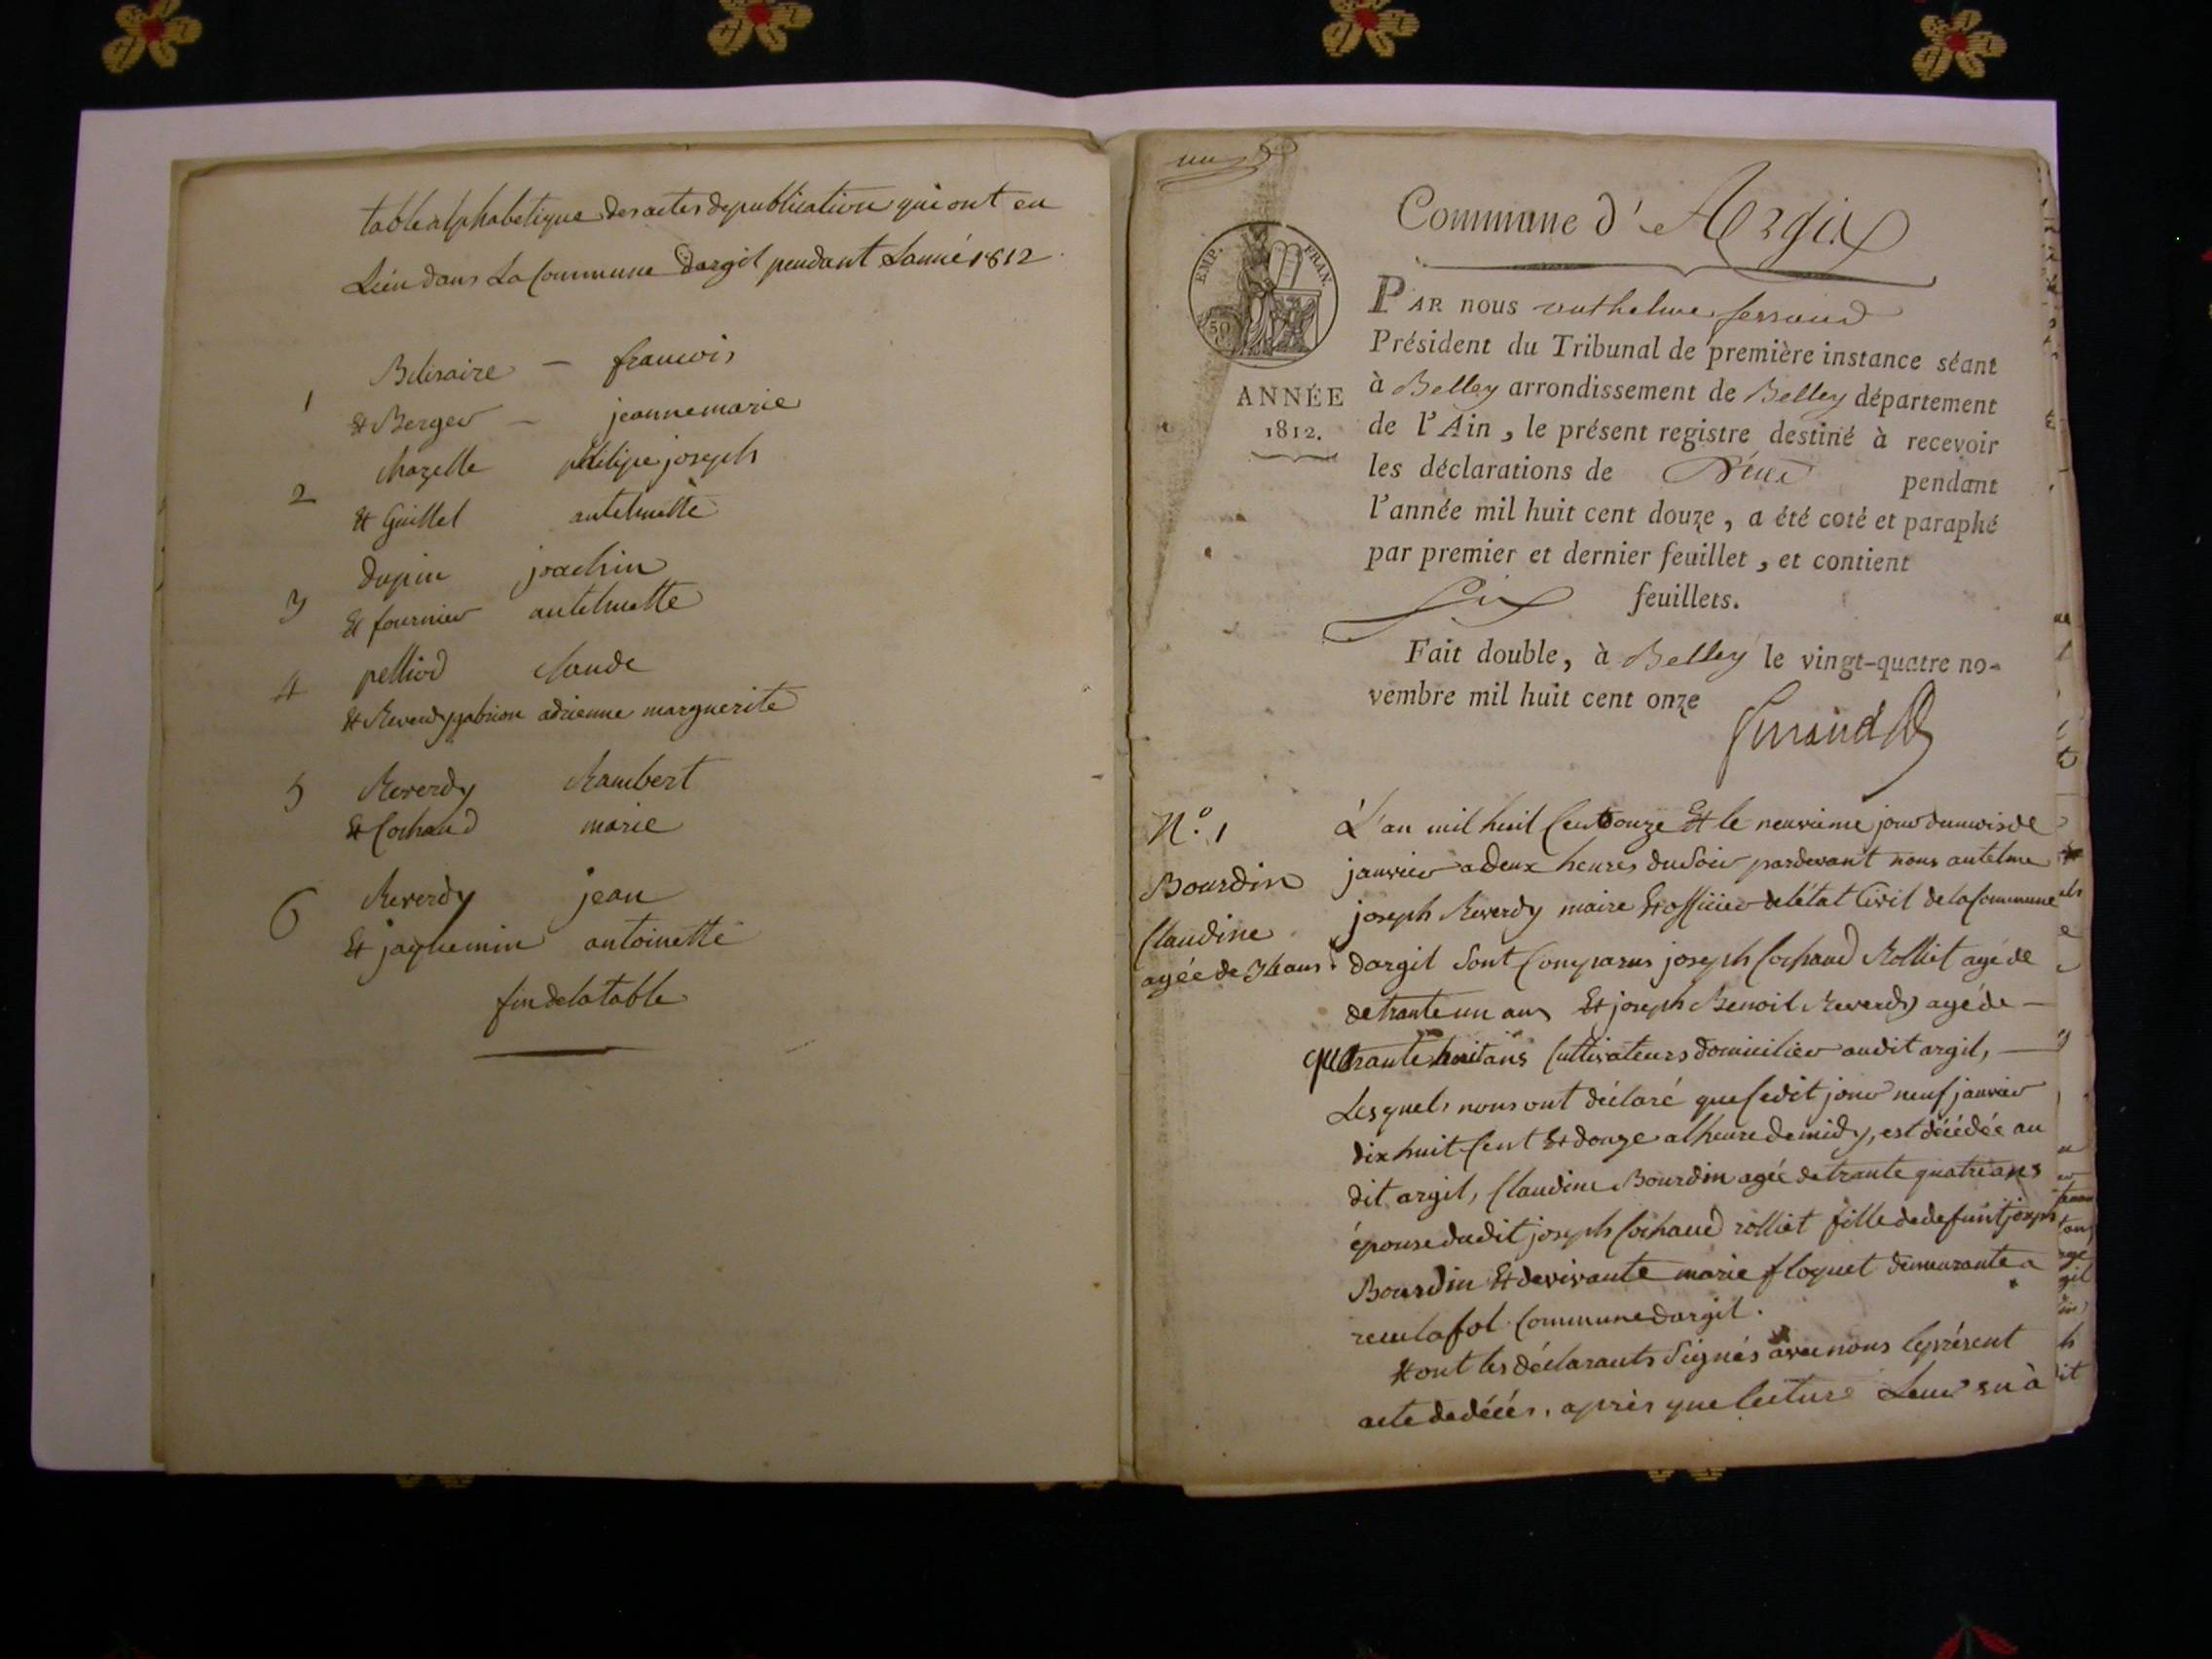 table alphabetique des actes de publication qui ont eu
Lieu dans La Commune dargit pendant Lanné 1812
Beliraire — francois
1
et Berger — jeannemarie
Chazelle philipe joseph
2
et Guillet antelmette
dupin joachin
3
et fournier antelmette
4 pelliod Claude
et Reverdy gabrion adrienne marguerite
5 Reverdy Rambert
et Cochaud marie
6 Reverdy jean
et jaquemin antoinette
fin de la table
un
Commune d' Argix
EMP. FRAN.
50
ANNÉE
1812.
PAR nous anthelme ferrand
Président du Tribunal de première instance séant
à Belley arrondissement de Belley département
de l'Ain, le présent registre destiné à recevoir
les déclarations de Décès pendant
l'année mil huit cent douze, a été coté et paraphé
par premier et dernier feuillet, et contient
Six feuillets.
Fait double, à Belley le vingt-quatre no-
vembre mil huit cent onze
N.° 1
Bourdin
Claudine
agée de 34 ans
L'an mil huit Cent douze Et le neuvieme jour du mois de
janvier a deux heures du Soir pardevant nous antelme
joseph Reverdy maire Et officier de létat Civil de la Commune
dargit Sont Comparus joseph Cochaud Rolliet agé de
de trante un ans Et joseph Benoit Reverdy agé de —
quatrante huit ans Cultivateurs domicilier audit argit, —
Lesquels nous ont déclaré que Cedit jour neuf janvier
dix huit Cent Et douze a lheure de midy, est décédée au
dit argit, Claudine Bourdin agée de trante quatre ans
épouse dudit joseph Cochaud rolliet fille de defunt joseph
Bourdin Et de vivante marie floquet demeurante a
reculafol Commune dargit.
Et ont les déclarants Signés avec nous Le présent
acte de décés, après que lecture Leur en à